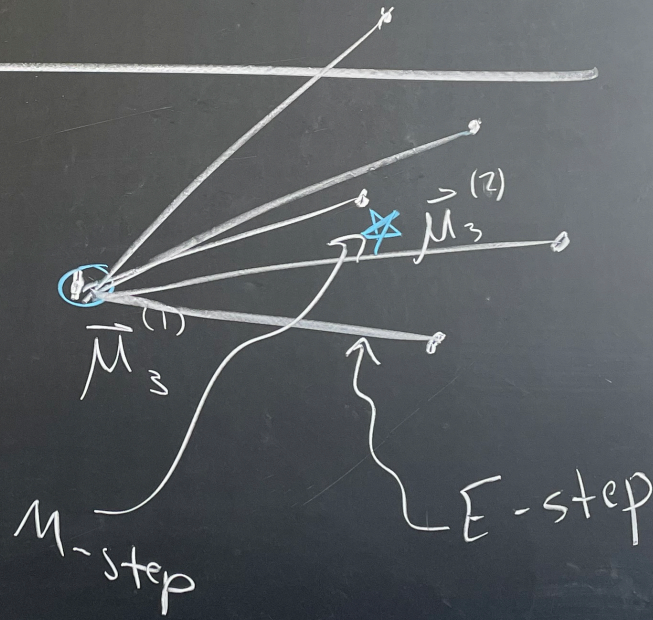 μ⃗₃⁽²⁾
μ⃗₃⁽¹⁾
M-step
E-step